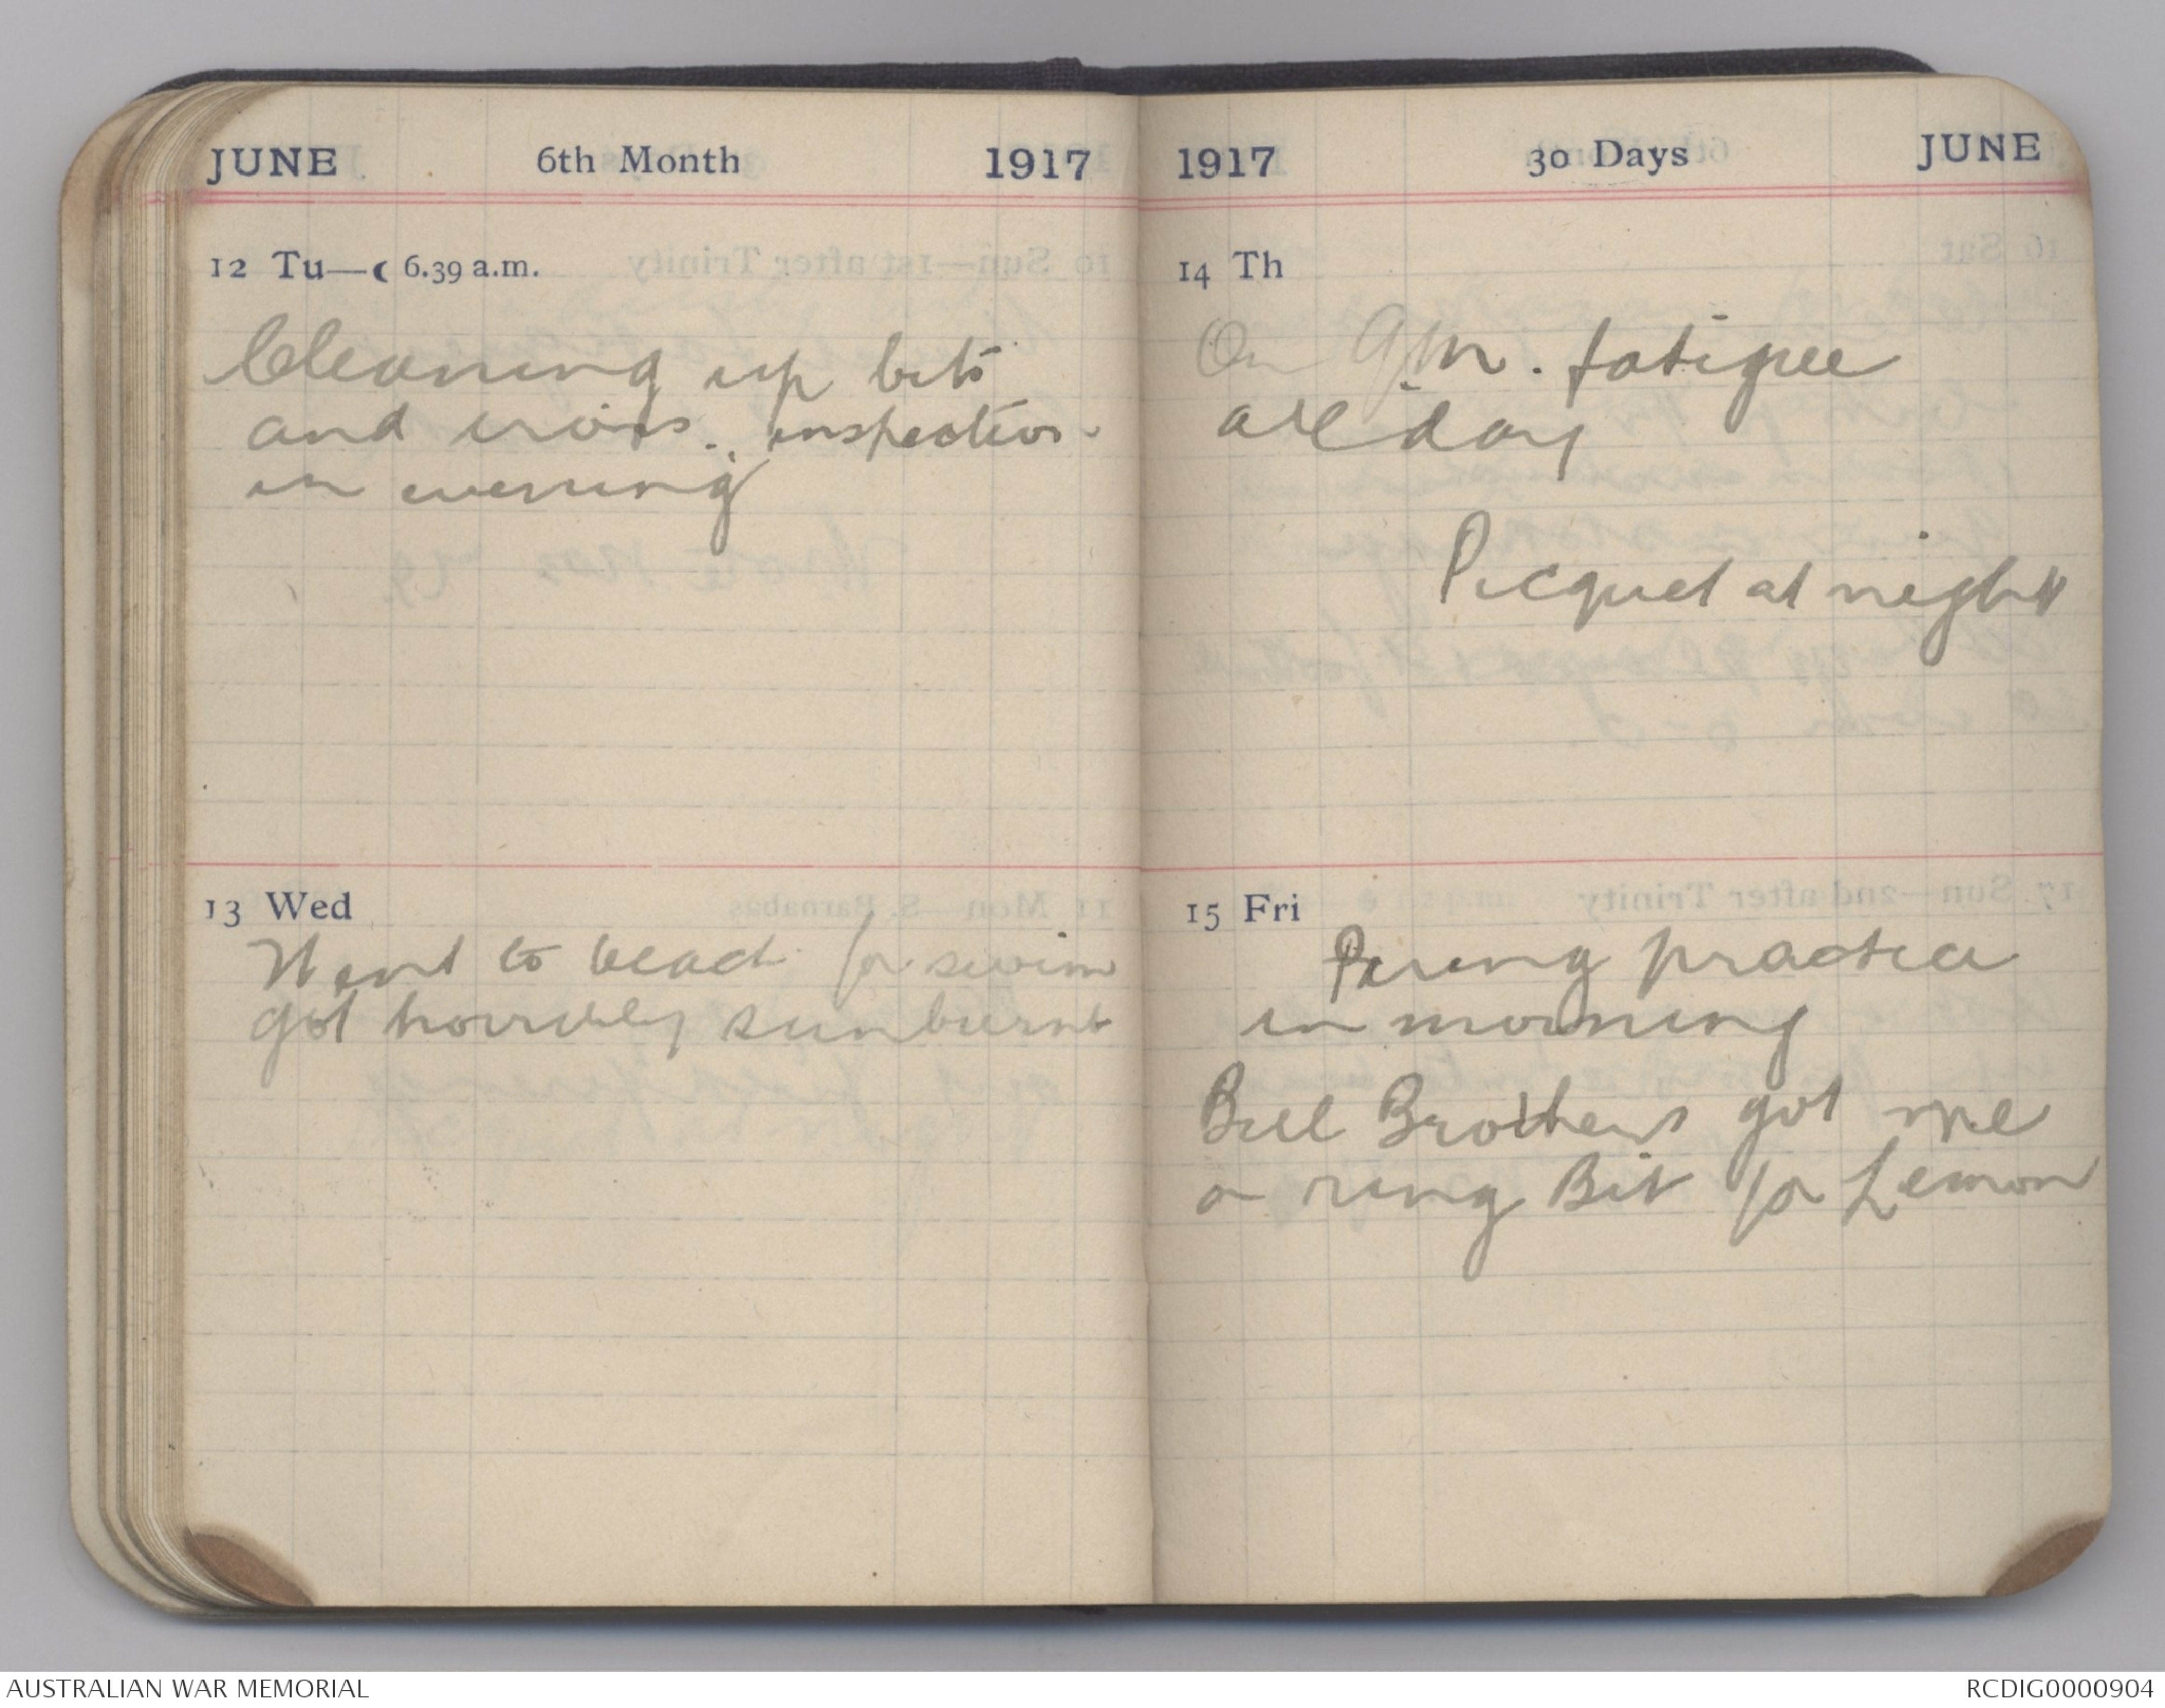 JUNE 6th Month 1917
12 Tu—☾ 6.39 a.m.
Cleaning up bits
and irons. inspection
in evening
13 Wed
Went to beach for swim
got horribly sunburnt
1917 30 Days JUNE
14 Th
On Q.M. fatigue
all day
Picquet at night
15 Fri
practice
in morning
Bill Brothers got me
a ring Bit for Lemon
AUSTRALIAN WAR MEMORIAL
RCDIG0000904